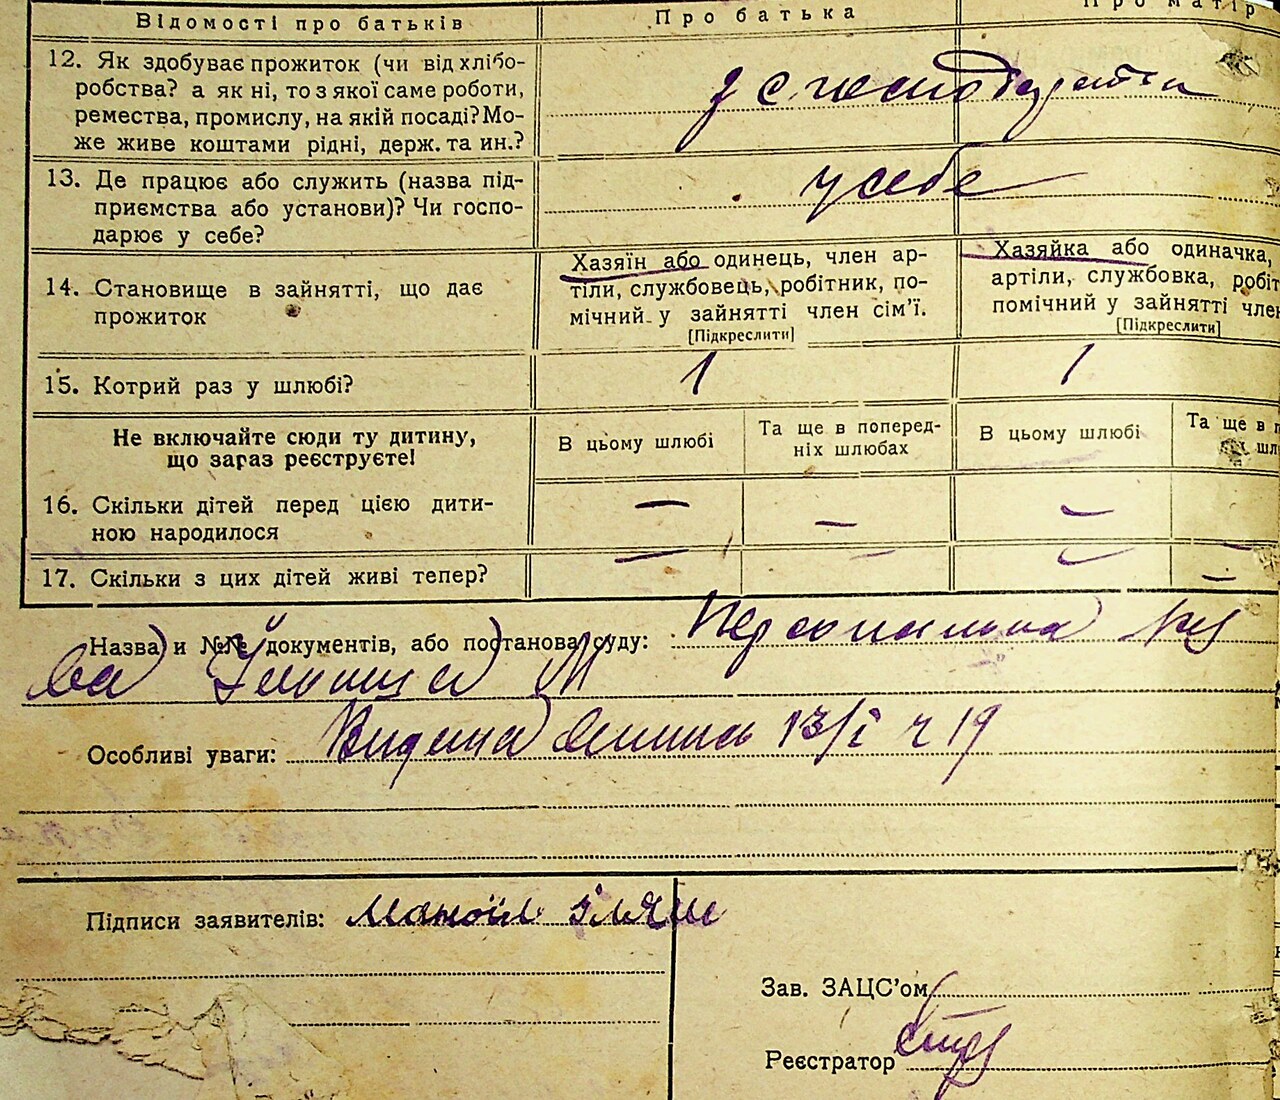 Відомості про батьків
Про батька
Про матір
12. Як здобуває прожиток (чи від хлібо-
робства? а як ні, то з якої саме роботи,
ремества, промислу, на якій посаді? Мо-
же живе коштами рідні, держ. та ин.?
13. Де працює або служить (назва під-
приємства або установи)? Чи госпо-
дарює у себе?
у себе
14. Становище в зайнятті, що дає
прожиток
Хазяїн або одинець, член ар-
тіли, службовець, робітник, по-
мічний у зайнятті член сім'ї.
[Підкреслити]
Хазяйка або одиначка,
артіли, службовка, робіт
помічний у зайнятті член
[Підкреслити]
15. Котрий раз у шлюбі?
1
1
Не включайте сюди ту дитину,
що зараз реєструєте!
В цьому шлюбі
Та ще в поперед-
ніх шлюбах
В цьому шлюбі
Та ще в п
шл
16. Скільки дітей перед цією дити-
ною народилося
—
—
—
17. Скільки з цих дітей живі тепер?
—
—
—
—
Назва и №№ документів, або постанова суду: Персональна
Особливі уваги: Видана 13/I ч 19
Підписи заявителів: Маноіл Іляш
Зав. ЗАЦС'ом
Реєстратор